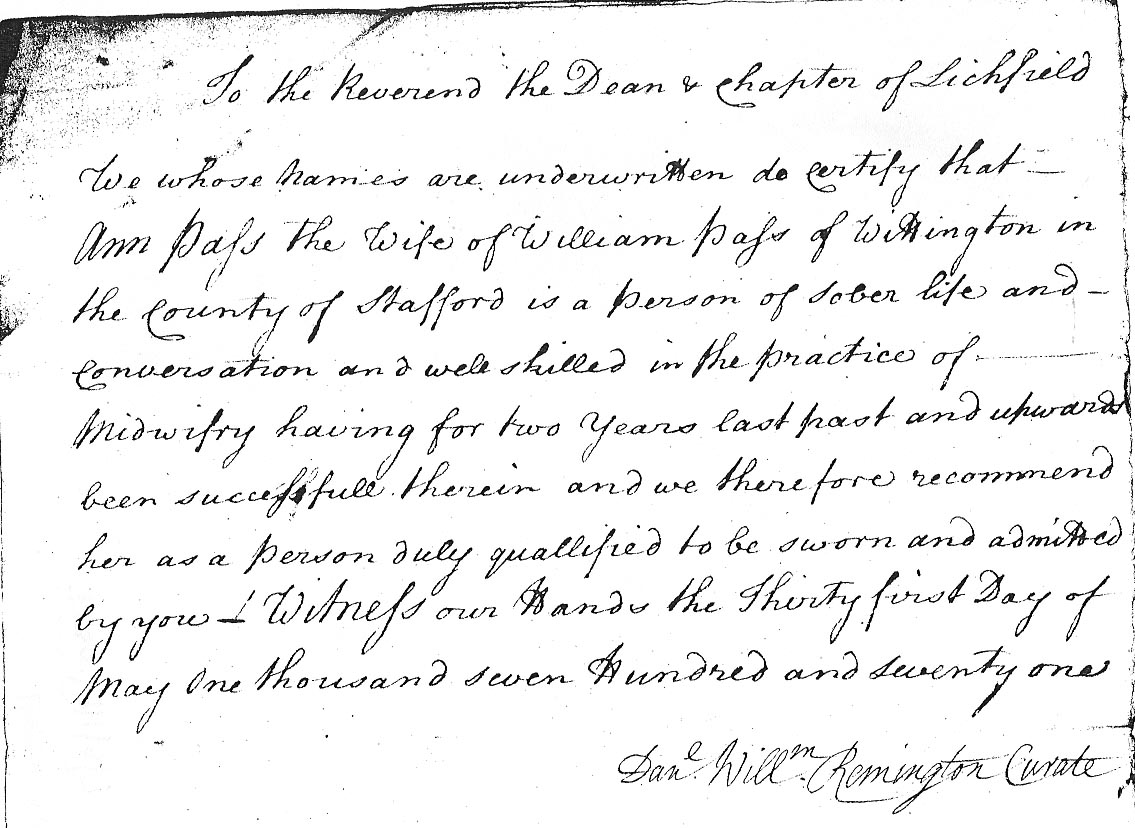 To the Reverend the Dean & Chapter of Lichfield
We whose Names are underwritten do Certify that —
Ann Paſs the Wife of William Paſs of Wittington in
the County of Stafford is a person of sober life and –
Conversation and well skilled in the practice of ——
Midwifry having for two Years last past and upwards
been succeſsfull therein and we therefore recommend
her as a person duly quallified to be sworn and admitted
by you – Witneſs our Hands the Thirty first Day of
May One thousand seven Hundred and seventy one
Danl. Willm. Remington Curate